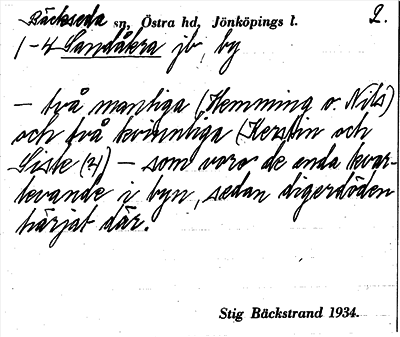 Bäckseda sn, Östra hd, Jönköpings l. 2.
1-4 Sandåkra jb, by
– två manliga (Hemming o. Nils)
och två kvinnliga (Kerstin och
Siste (?)) – som voro de enda kvar-
levande i byn, sedan digerdöden
härjat där.
Stig Bäckstrand 1934.